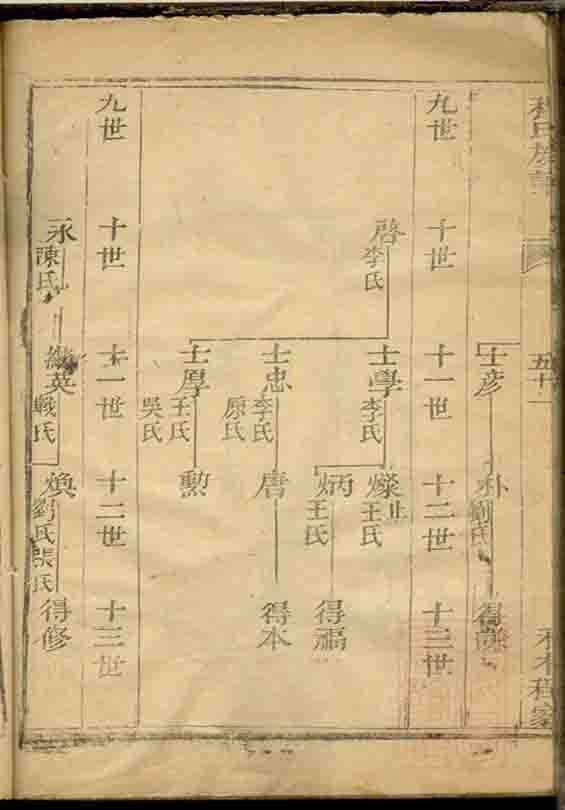 程氏族譜
五十一
程家
士彥
朴
劉氏
得
九世
十世
十一世
十二世
十三世
啓
李氏
士學
李氏
燦
王氏
止
炳
王氏
得福
士忠
李氏
原氏
唐
得本
士厚
王氏
吳氏
勲
九世
十世
十一世
十二世
十三世
永
陳氏
繼英
戰氏
煥
劉氏
張氏
得修